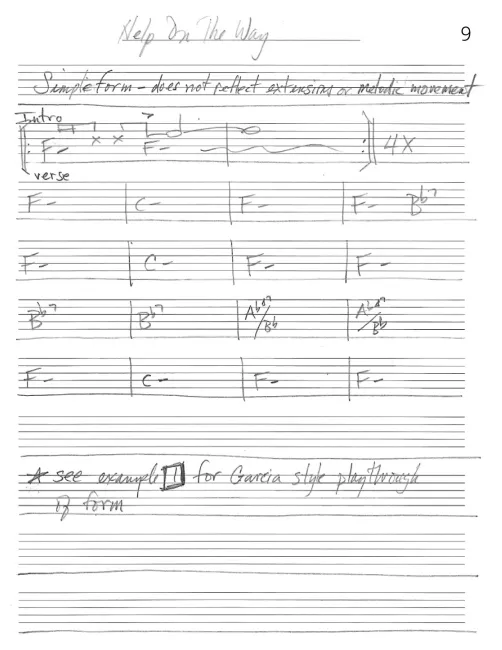 Help On The Way
9
Simple form - does not reflect extensions or melodic movement
Intro
F- x x F- 4X
verse
F- C- F- F- Bb7
F- C- F- F-
Bb7 Bb7 Ab△7/Bb Ab△7/Bb
F- C- F- F-
* see example 1 for Garcia style playthrough
of form